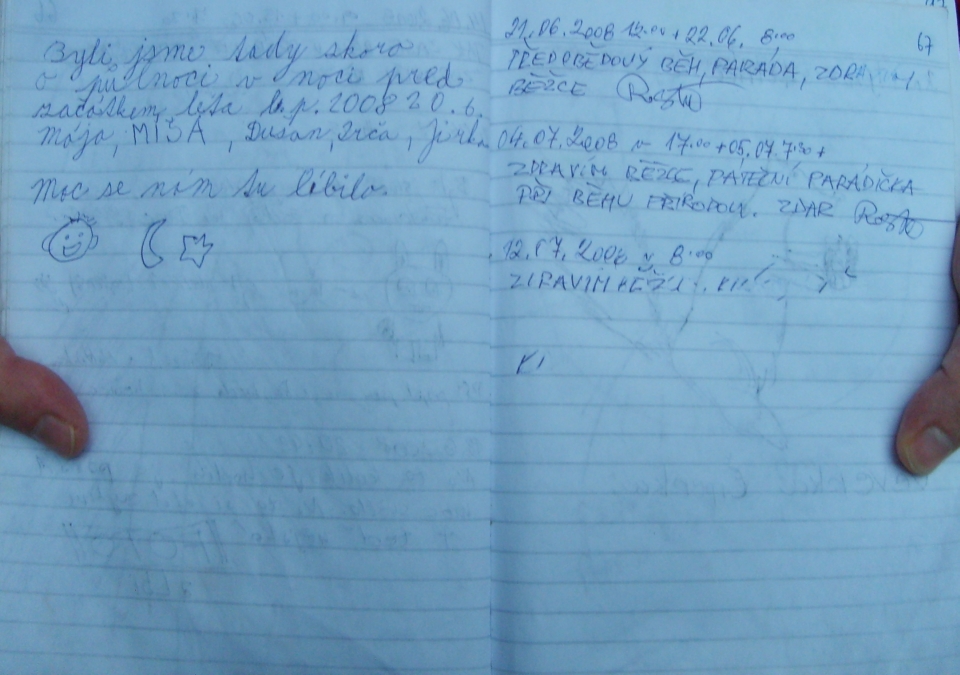 Byli jsme tady skoro
o půlnoci v noci před
začátkem léta l.p. 2008 20.6.
Mája, MIŠA, Dušan, Irča, Jirka
Moc se nám tu líbilo.
67
21.06.2008 + 22.06. 8:00
PŘEDOBĚDOVÝ BĚH, PARÁDA,
BĚŽCE
04.07.2008 v 17.00 + 05.07. 7:30 +
ZDRAVÍM BĚŽCE, PÁTEČNÍ PARÁDIČKA
PŘI BĚHU PŘÍRODOU. ZDAR
12.07.2008 v 8:00
ZDRAVÍM